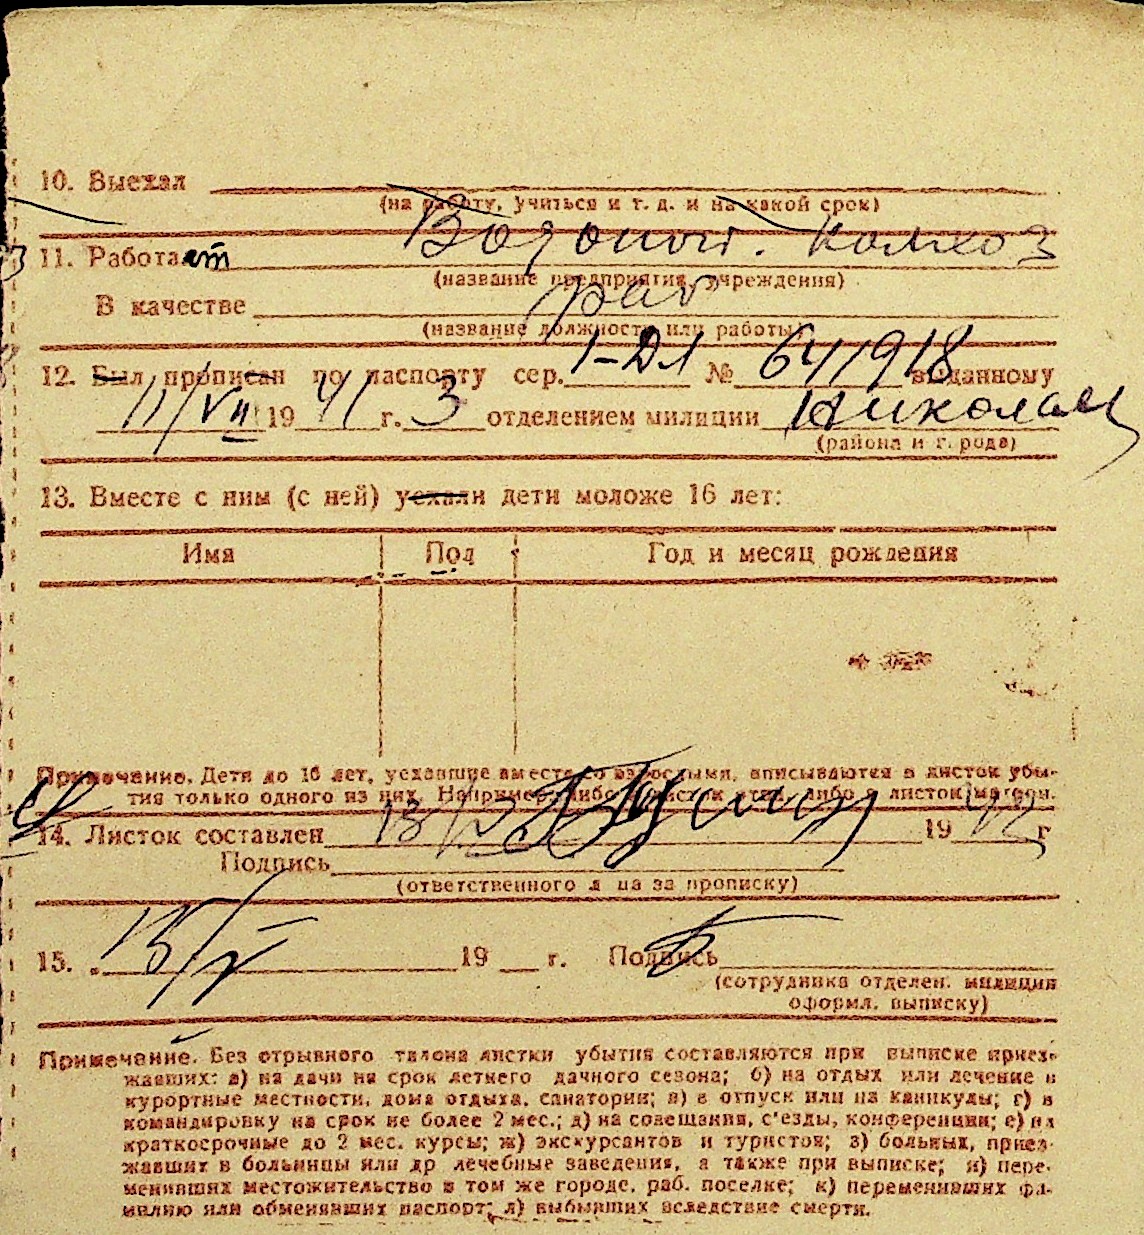 10. Выехал
(на работу, учиться и т. д. и на какой срок)
колхоз
11. Работает
(название предприятия, учреждения)
В качестве раб
(название должности или работы)
12. Был прописан по паспорту сер. I-ДЛ № 641918 выданному
11/VII 19 41 г. 3 отделением милиции Николаев
(района и города)
13. Вместе с ним (с ней) уехали дети моложе 16 лет:
Имя Пол Год и месяц рождения
Примечание. Дети до 16 лет, уехавшие вместе со взрослыми, вписываются в листок убы-
тия только одного из них. Например: либо в листок отца либо в листок матери.
14. Листок составлен 13/V 19 г
Подпись
(ответственного лица за прописку)
15. 15/V 19 г. Подпись
(сотрудника отделен. милиции
оформл. выписку)
Примечание. Без отрывного талона листки убытия составляются при выписке приез-
жавших: а) на дачи на срок летнего дачного сезона; б) на отдых или лечение в
курортные местности, дома отдыха, санатории; в) в отпуск или на каникулы; г) в
командировку на срок не более 2 мес.; д) на совещания, с'езды, конференции; е) на
краткосрочные до 2 мес. курсы; ж) экскурсантов и туристов; з) больных, приез-
жавших в больницы или др лечебные заведения, а также при выписке; и) пере-
менивших местожительство в том же городе, раб. поселке; к) переменивших фа-
милию или обменявших паспорт; л) выбывших вследствие смерти.